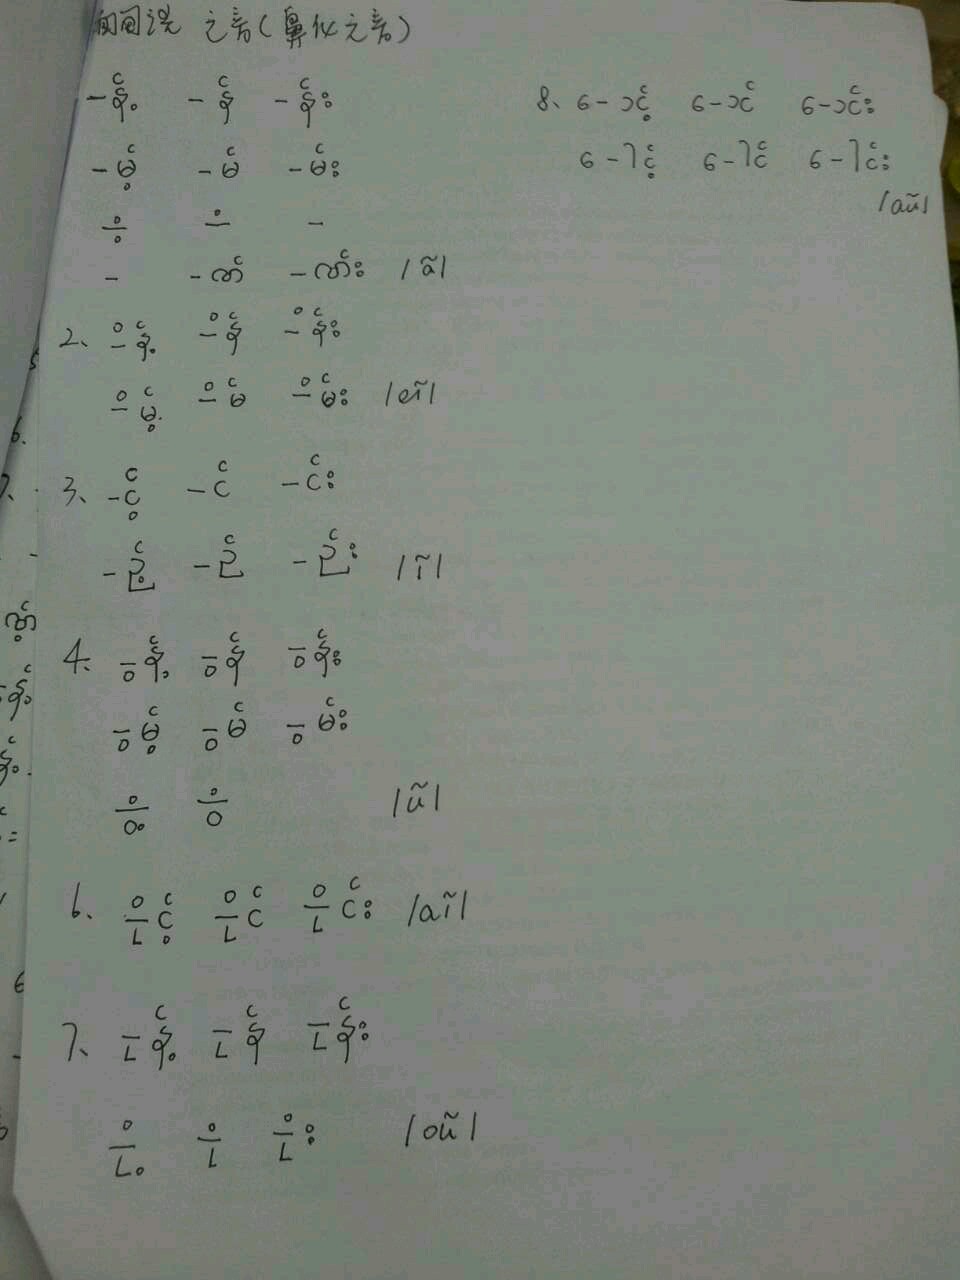 之音(鼻化之音)
-န့် -န် -န်း
-မ့် -မ် -မ်း
-ံ့ -ံ -
- -ဏ် -ဏ်း /ã/
2、 -ိန့် -ိန် -ိန်း
-ိမ့် -ိမ် -ိမ်း /eĩ/
3、 -င့် -င် -င်း
-ဉ့် -ဉ် -ဉ်း /ĩ/
4、 -ွန့် -ွန် -ွန်း
-ွမ့် -ွမ် -ွမ်း
-ွံ့ -ွံ /ũ/
6、 -ိုင့် -ိုင် -ိုင်း /aĩ/
7、 -ုန့် -ုန် -ုန်း
-ုံ့ -ုံ -ုံး /oũ/
8、 ေ-ာင့် ေ-ာင် ေ-ာင်း
ေ-ါင့် ေ-ါင် ေ-ါင်း
/aũ/